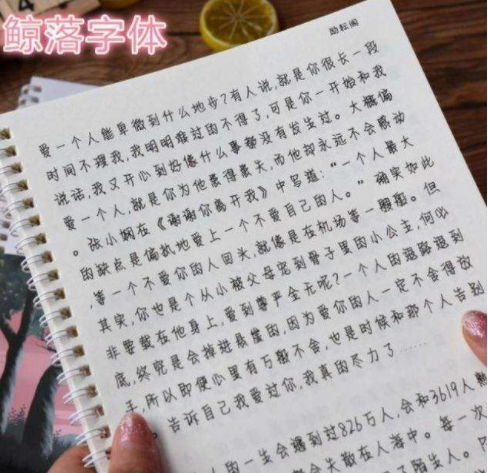 鲸落字体
励耘阁
爱一个人能卑微到什么地步?有人说,就是你很长一段
时间不理我,我明明难过的不得了,可是你一开始和我
说话,我又开心到好像什么事都没有发生过。大概偏
爱一个人,就是你为他患得患失,而他却永远不会感动
。张小娴在《谢谢你离开我》中写道:“一个人最大
的缺点是偏执地爱上一个不爱自己的人。”确实如此
,等一个不爱你的人回头,就像是在机场等一艘船。但
其实,你也是个从小被父母宠到骨子里的小公主,何必
非要栽在他身上,爱到尊严全无呢?一个人的退路退到
底,终究是会掉进悬崖的,因为爱你的人一定不会得放
手,所以即便心里有万般不舍,也是时候和那个人告别
。告诉自己我爱过你,我真的尽力了……
人的一生会遇到过826万人,会和3619人
失散在人海中。每一次